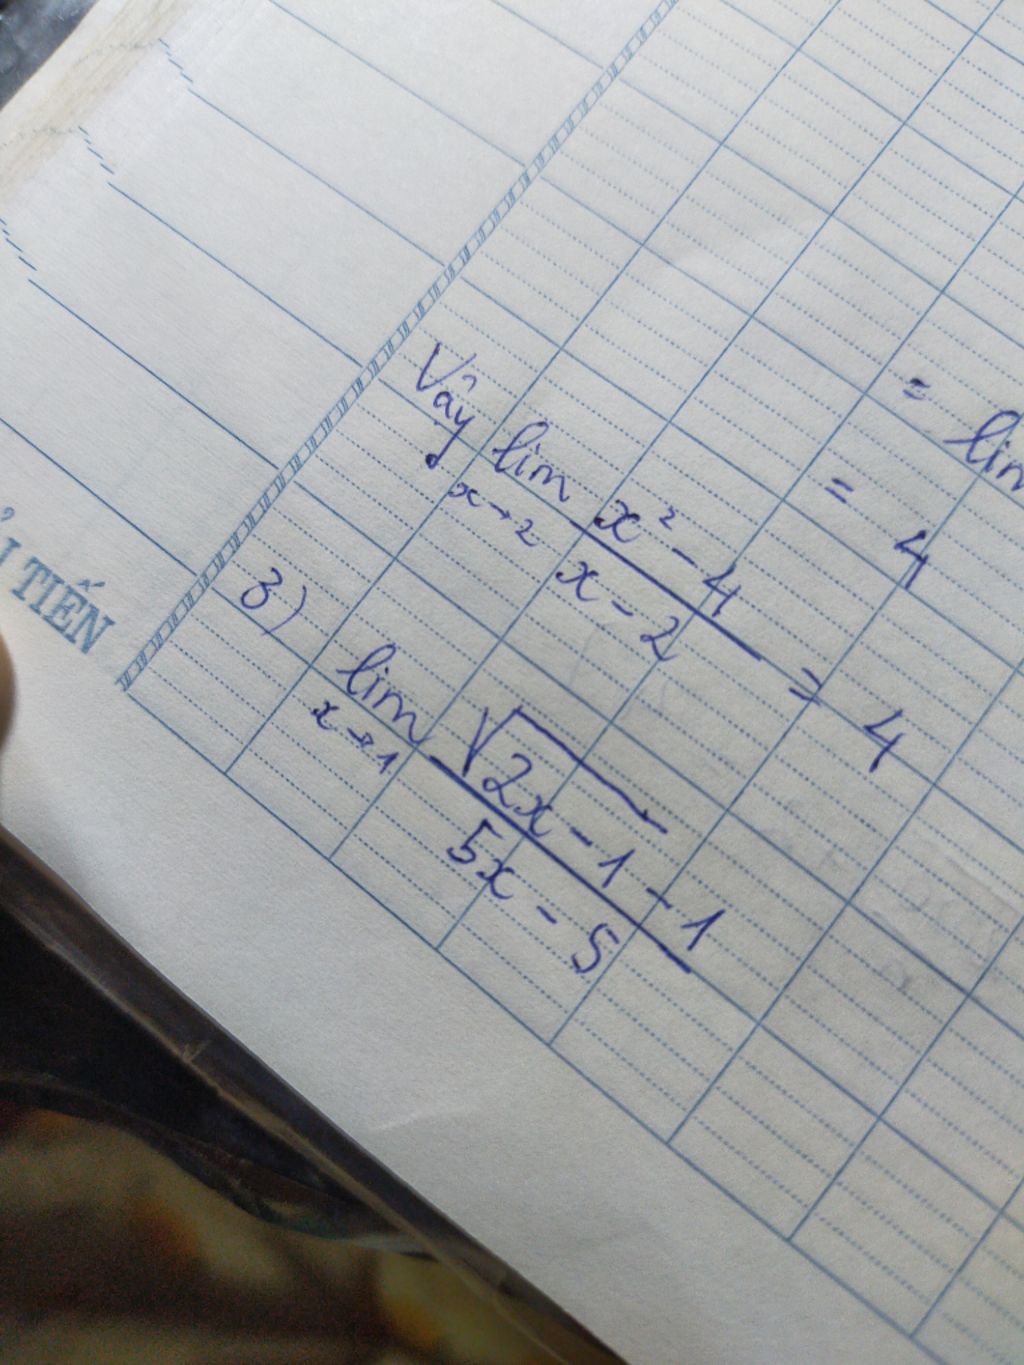 = lim
= 4
Vậy lim x→2 (x² - 4)/(x - 2) = 4
3) lim x→1 (√(2x - 1) - 1)/(5x - 5)
TIẾN